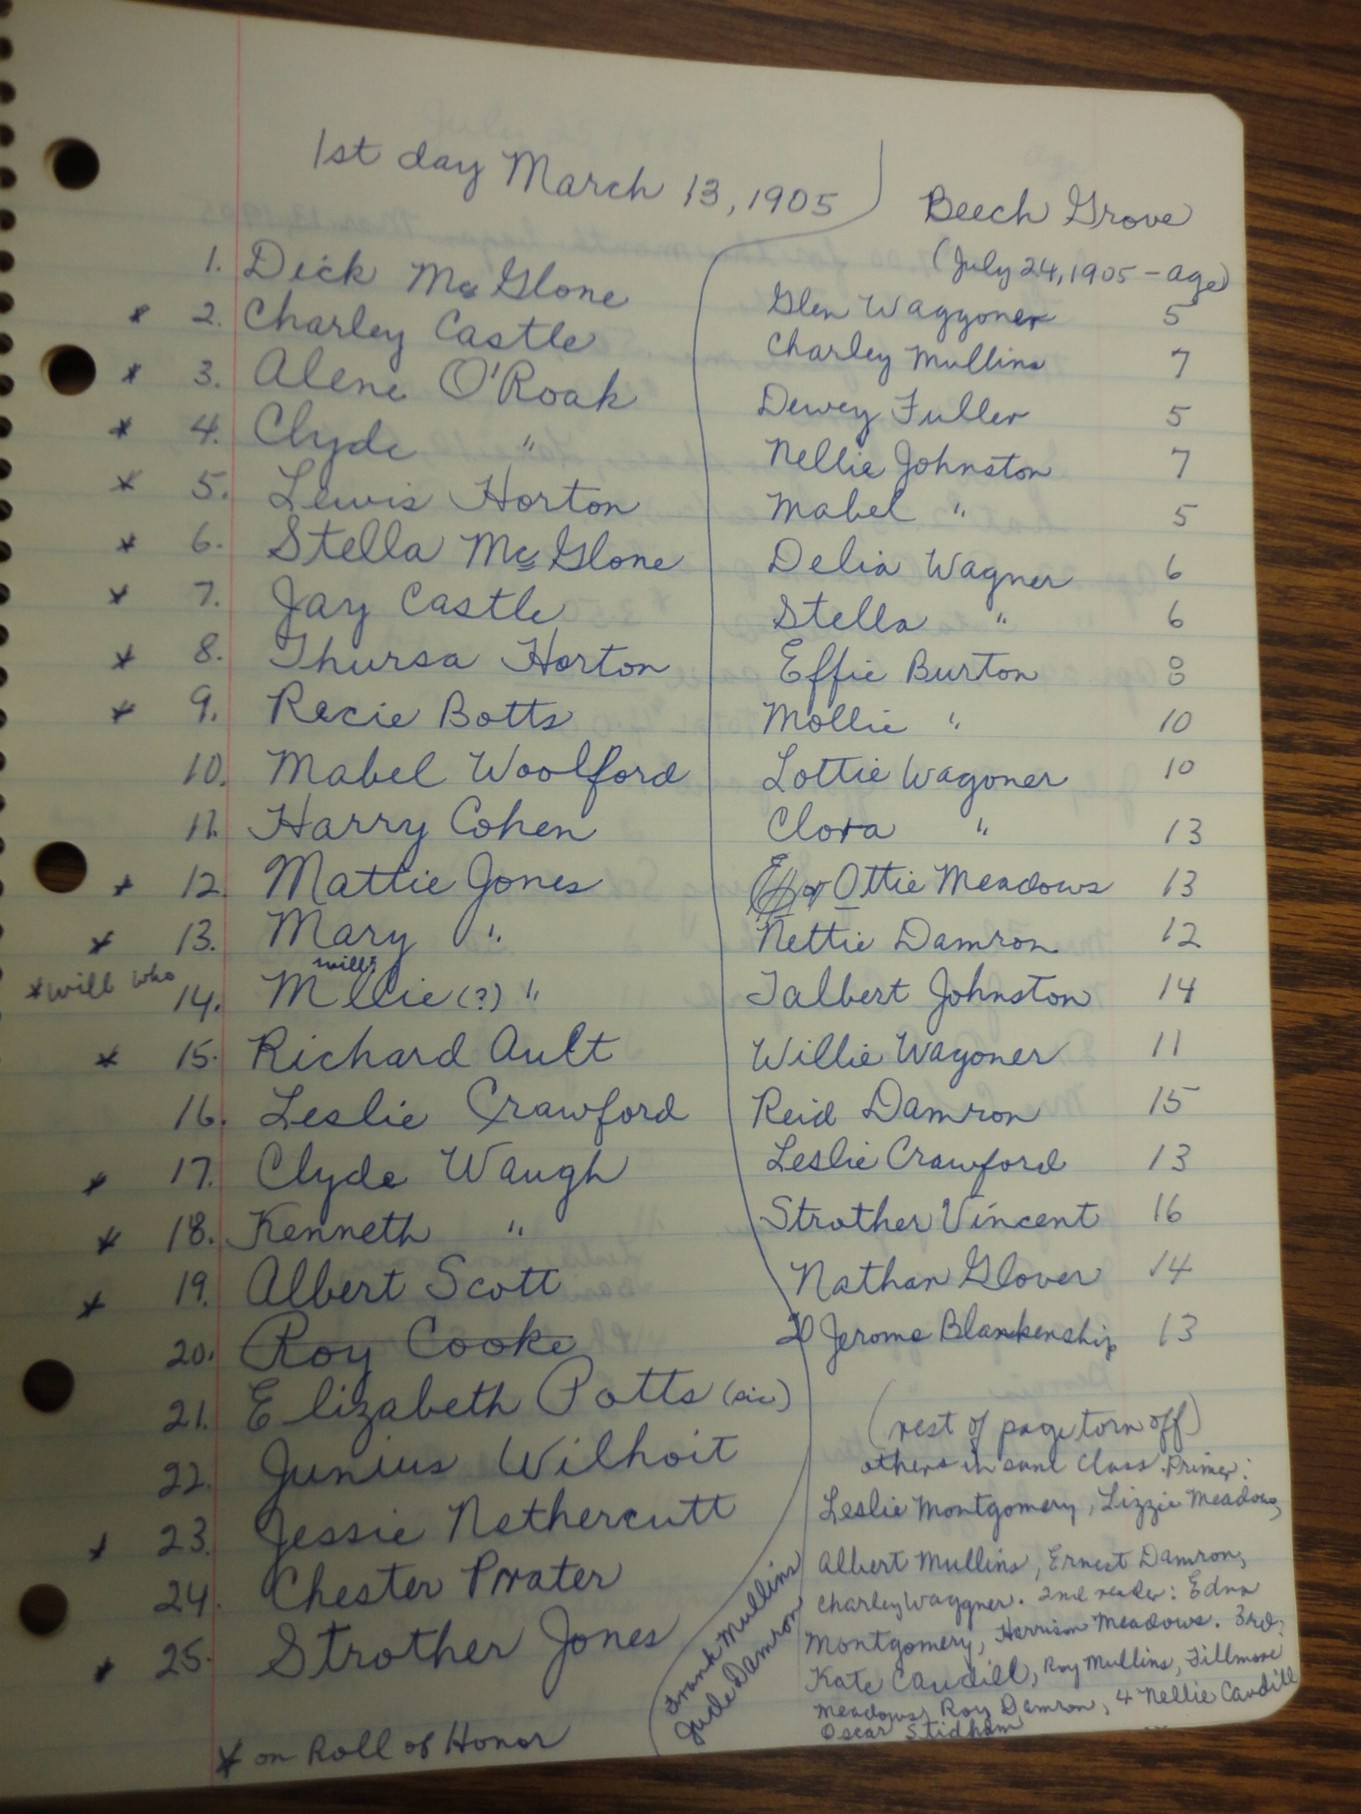 1st day March 13, 1905
1. Dick McGlone
* 2. Charley Castle
* 3. Alene O'Roak
* 4. Clyde "
* 5. Lewis Horton
* 6. Stella McGlone
* 7. Jay Castle
* 8. Thursa Horton
* 9. Racie Botts
10. Mabel Woolford
11. Harry Cohen
* 12. Mattie Jones
* 13. Mary "
*will who 14. Mllie (?) "
15. Richard Ault
16. Leslie Crawford
* 17. Clyde Waugh
* 18. Kenneth "
* 19. Albert Scott
20. Roy Cooke
21. Elizabeth Potts (sic)
22. Junius Wilhoit
* 23. Jessie Nethercutt
24. Chester Prater
* 25. Strother Jones
* on Roll of Honor
Beech Grove
(July 24, 1905 - age)
Glen Waggoner 5
Charley Mullins 7
Dewey Fuller 5
Nellie Johnston 7
Mabel " 5
Delia Wagner 6
Stella " 6
Effie Burton 8
Mollie " 10
Lottie Wagoner 10
Clora " 13
or Ottie Meadows 13
Nettie Damron 12
Talbert Johnston 14
Willie Wagoner 11
Reid Damron 15
Leslie Crawford 13
Strother Vincent 16
Nathan Glover 14
20 Jerome Blankenship 13
(rest of page torn off)
others in same class. Primer:
Leslie Montgomery, Lizzie Meadows,
Albert Mullins, Ernest Damron,
Charley Waggner. 2nd reader: Edna
Montgomery, Harrison Meadows. 3rd:
Kate Caudill, Roy Mullins, Fillmore
Meadows, Roy Damron, 4 Nellie Caudill
Oscar Stidham
Frank Mullins
Jude Damron